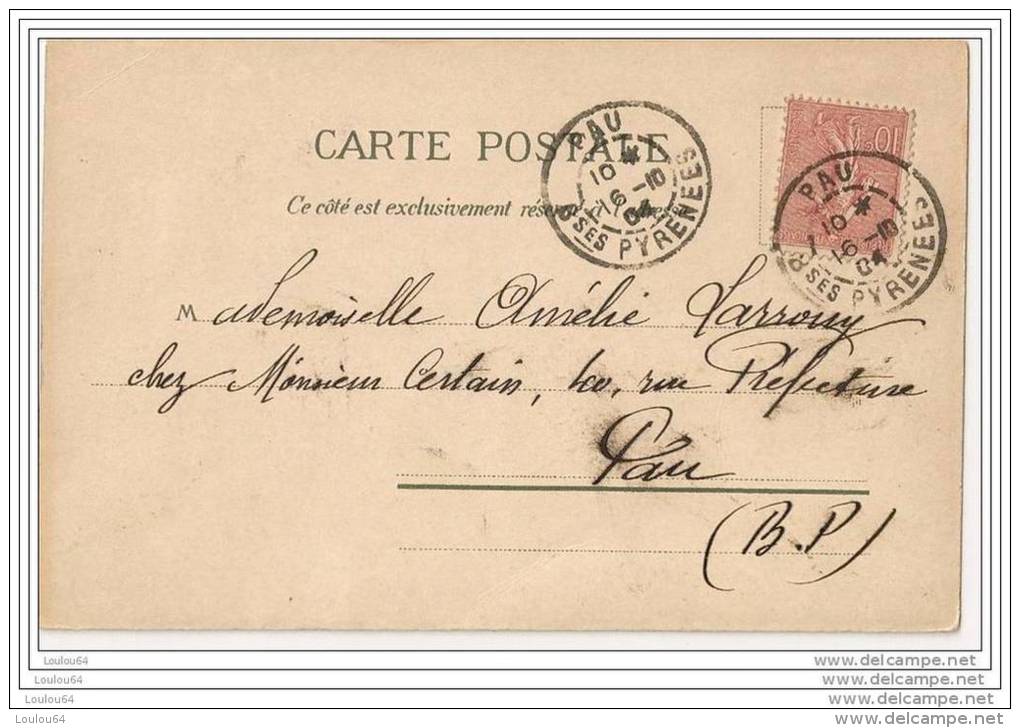 CARTE POSTALE
Ce côté est exclusivement réservé à l'adresse
PAU
10 *
16 -10
04
BSES PYRENEES
10c
PAU
10 *
16 -10
04
BSES PYRENEES
Mademoiselle Amélie Larrouy
chez Monsieur Certain, rue Préfecture
Pau
(B.P)
Loulou64 www.delcampe.net
Loulou64 www.delcampe.net
Loulou64 www.delcampe.net
Loulou64 www.delcampe.net